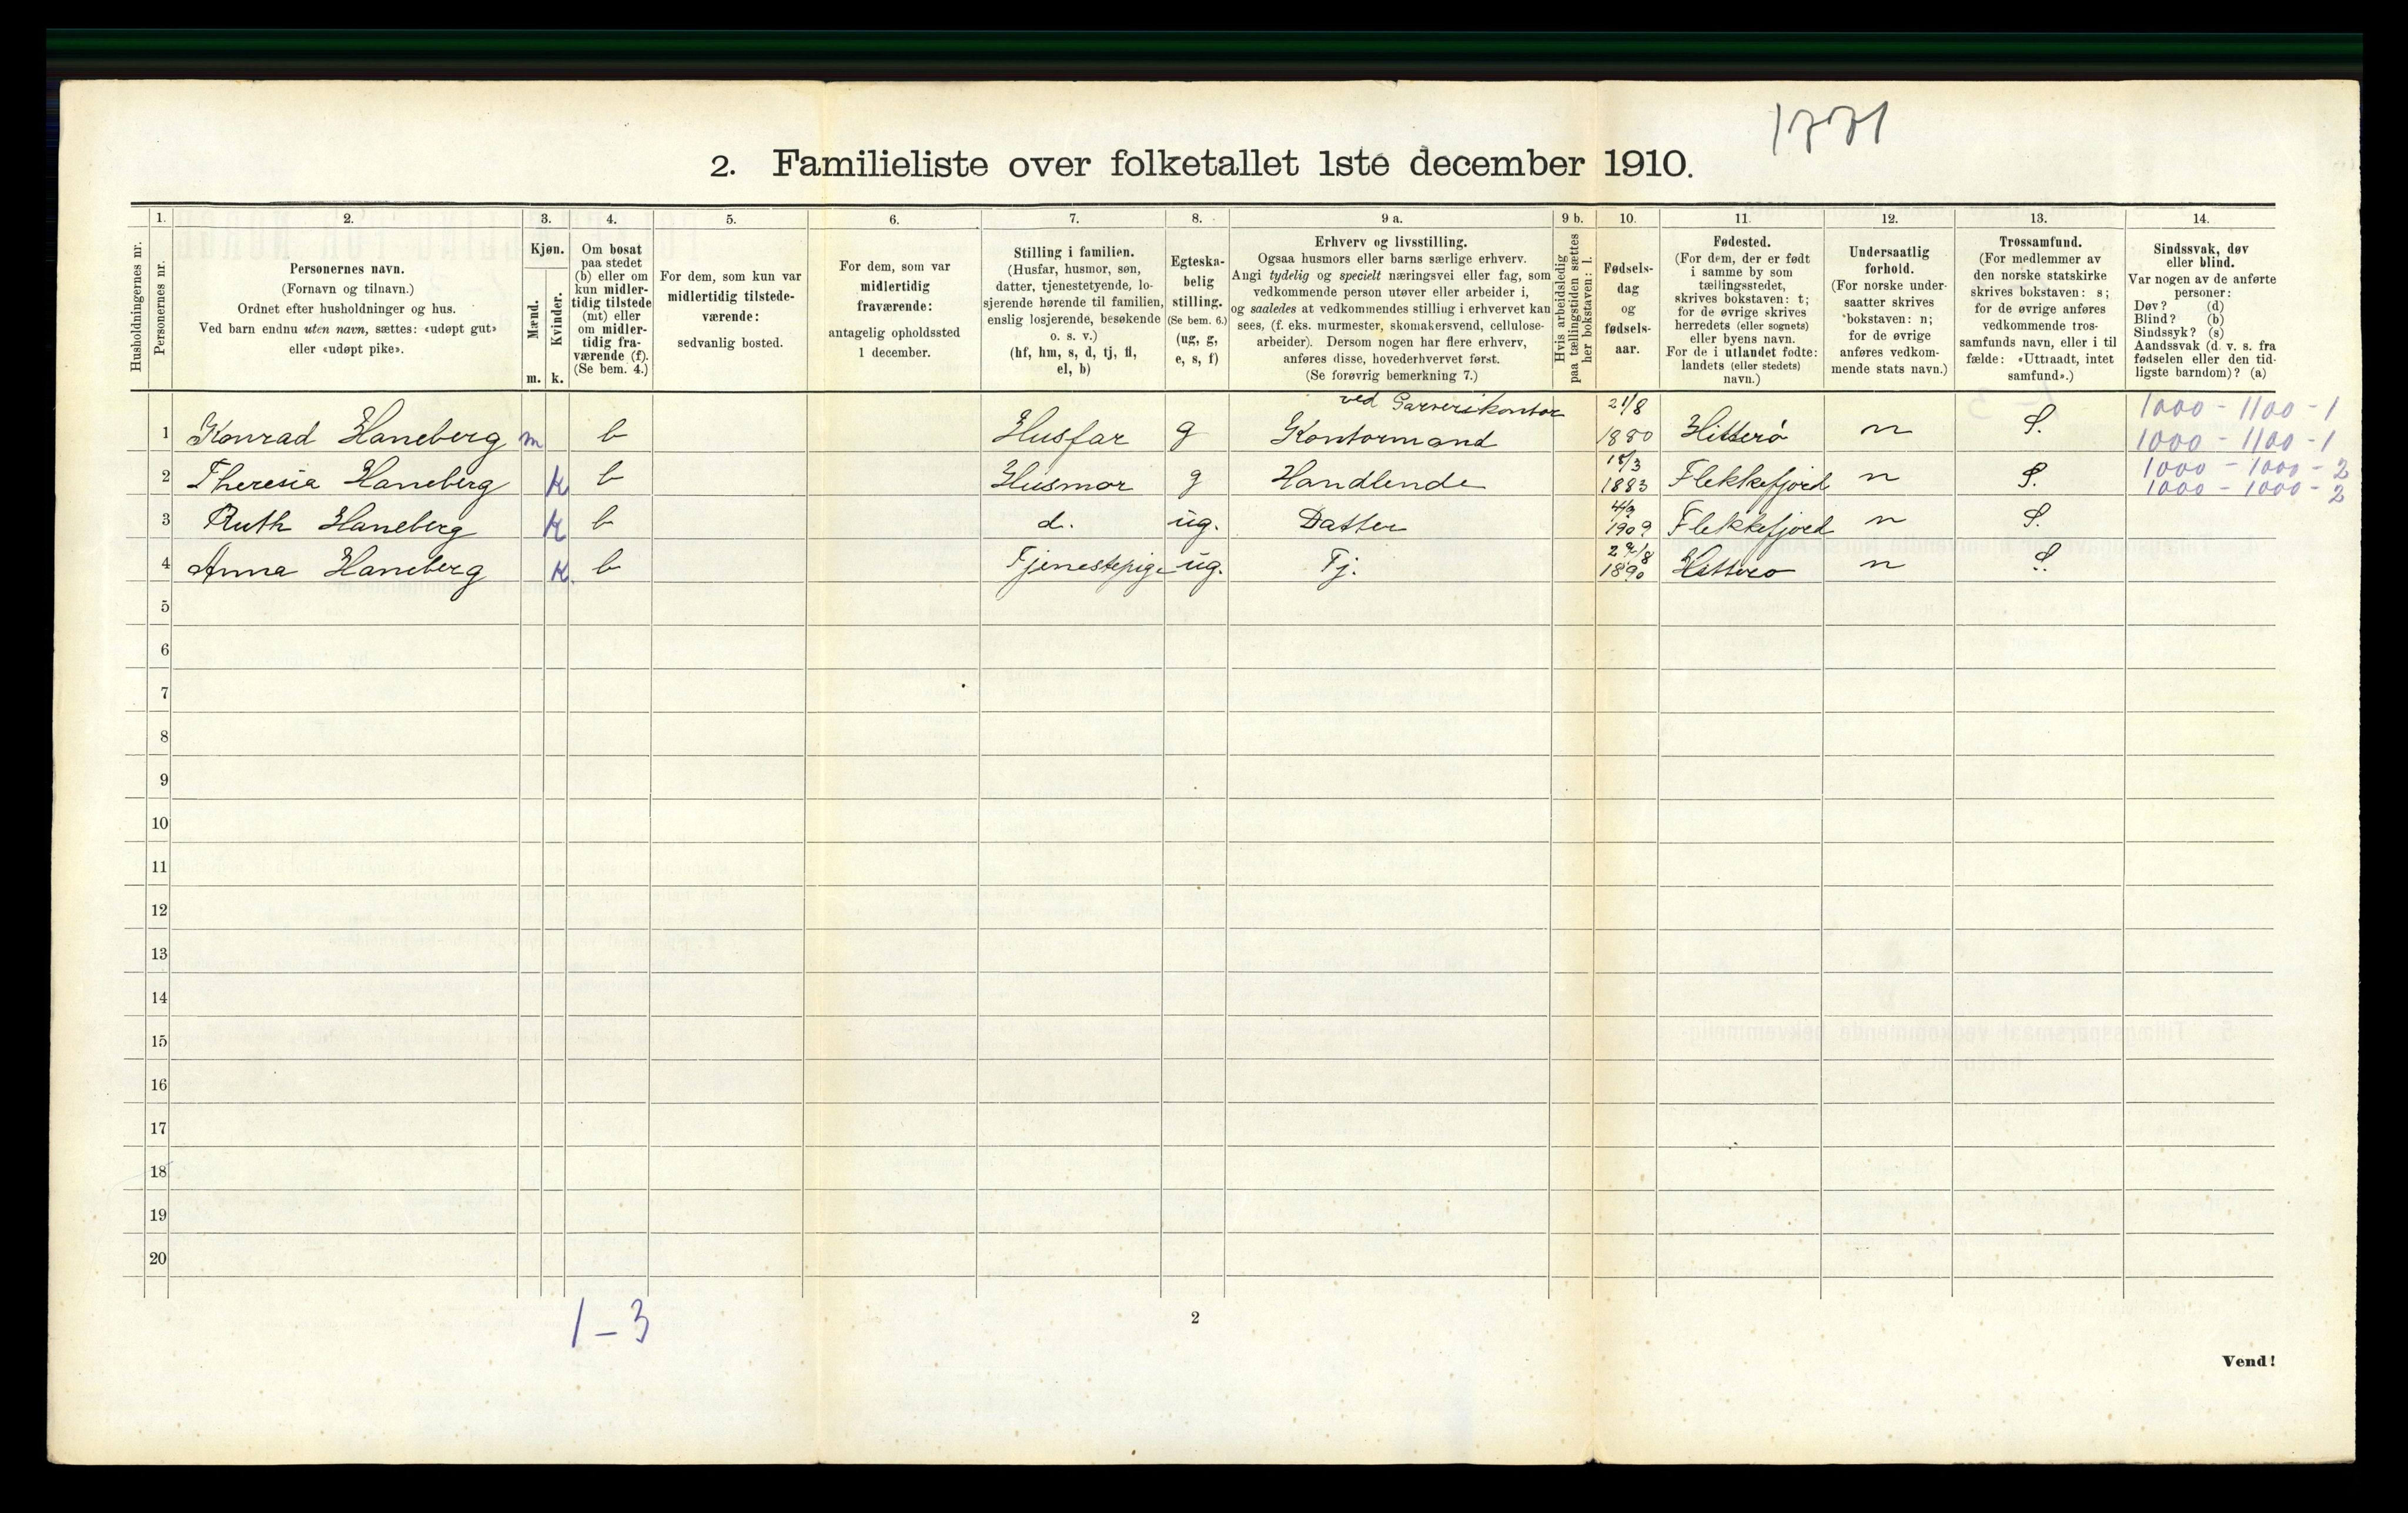 1771
2. Familieliste over folketallet 1ste december 1910.
1. 2. 3. 4. 5. 6. 7. 8. 9 a. 9 b. 10. 11. 12. 13. 14.
Husholdningernes nr.
Personernes nr.
Personernes navn.
(Fornavn og tilnavn.)
Ordnet efter husholdninger og hus.
Ved barn endnu uten navn, sættes: «udøpt gut»
eller «udøpt pike».
Kjøn.
Mænd.
Kvinder.
m. k.
Om bosat
paa stedet
(b) eller om
kun midler-
tidig tilstede
(mt) eller
om midler-
tidig fra-
værende (f).
(Se bem. 4.)
For dem, som kun var
midlertidig tilstede-
værende:
sedvanlig bosted.
For dem, som var
midlertidig
fraværende:
antagelig opholdssted
1 december.
Stilling i familien.
(Husfar, husmor, søn,
datter, tjenestetyende, lo-
sjerende hørende til familien,
enslig losjerende, besøkende
o. s. v.)
(hf, hm, s, d, tj, fl,
el, b)
Egteska-
belig
stilling.
(Se bem. 6.)
(ug, g,
e, s, f)
Erhverv og livsstilling.
Ogsaa husmors eller barns særlige erhverv.
Angi tydelig og specielt næringsvei eller fag, som
vedkommende person utøver eller arbeider i,
og saaledes at vedkommendes stilling i erhvervet kan
sees, (f. eks. murmester, skomakersvend, cellulose-
arbeider). Dersom nogen har flere erhverv,
anføres disse, hovederhvervet først.
(Se forøvrig bemerkning 7.)
Hvis arbeidsledig
paa tællingstiden sættes
her bokstaven: l.
Fødsels-
dag
og
fødsels-
aar.
Fødested.
(For dem, der er født
i samme by som
tællingsstedet,
skrives bokstaven: t;
for de øvrige skrives
herredets (eller sognets)
eller byens navn.
For de i utlandet fødte:
landets (eller stedets)
navn.)
Undersaatlig
forhold.
(For norske under-
saatter skrives
bokstaven: n;
for de øvrige
anføres vedkom-
mende stats navn.)
Trossamfund.
(For medlemmer av
den norske statskirke
skrives bokstaven: s;
for de øvrige anføres
vedkommende tros-
samfunds navn, eller i til
fælde: «Uttraadt, intet
samfund».)
Sindssvak, døv
eller blind.
Var nogen av de anførte
personer:
Døv? (d)
Blind? (b)
Sindssyk? (s)
Aandssvak (d. v. s. fra
fødselen eller den tid-
ligste barndom)? (a)
ved Garverikontor 21/8 1000 - 1100 - 1
1 Konrad Haneberg m b Husfar g Kontormand 1880 Hitterø n S. 1000 - 1100 - 1
18/3 1000 - 1000 - 2
2 Theresia Haneberg k b Husmor g Handlende 1883 Flekkefjord n S. 1000 - 1000 - 2
3 Ruth Haneberg k b d. ug. Datter 1909 Flekkefjord n S.
4 Anna Haneberg k. b Tjenestepige ug. Tj. 1890 Hitterø n S.
5
6
7
8
9
10
11
12
13
14
15
16
17
18
19
20
1 - 3
2
Vend!